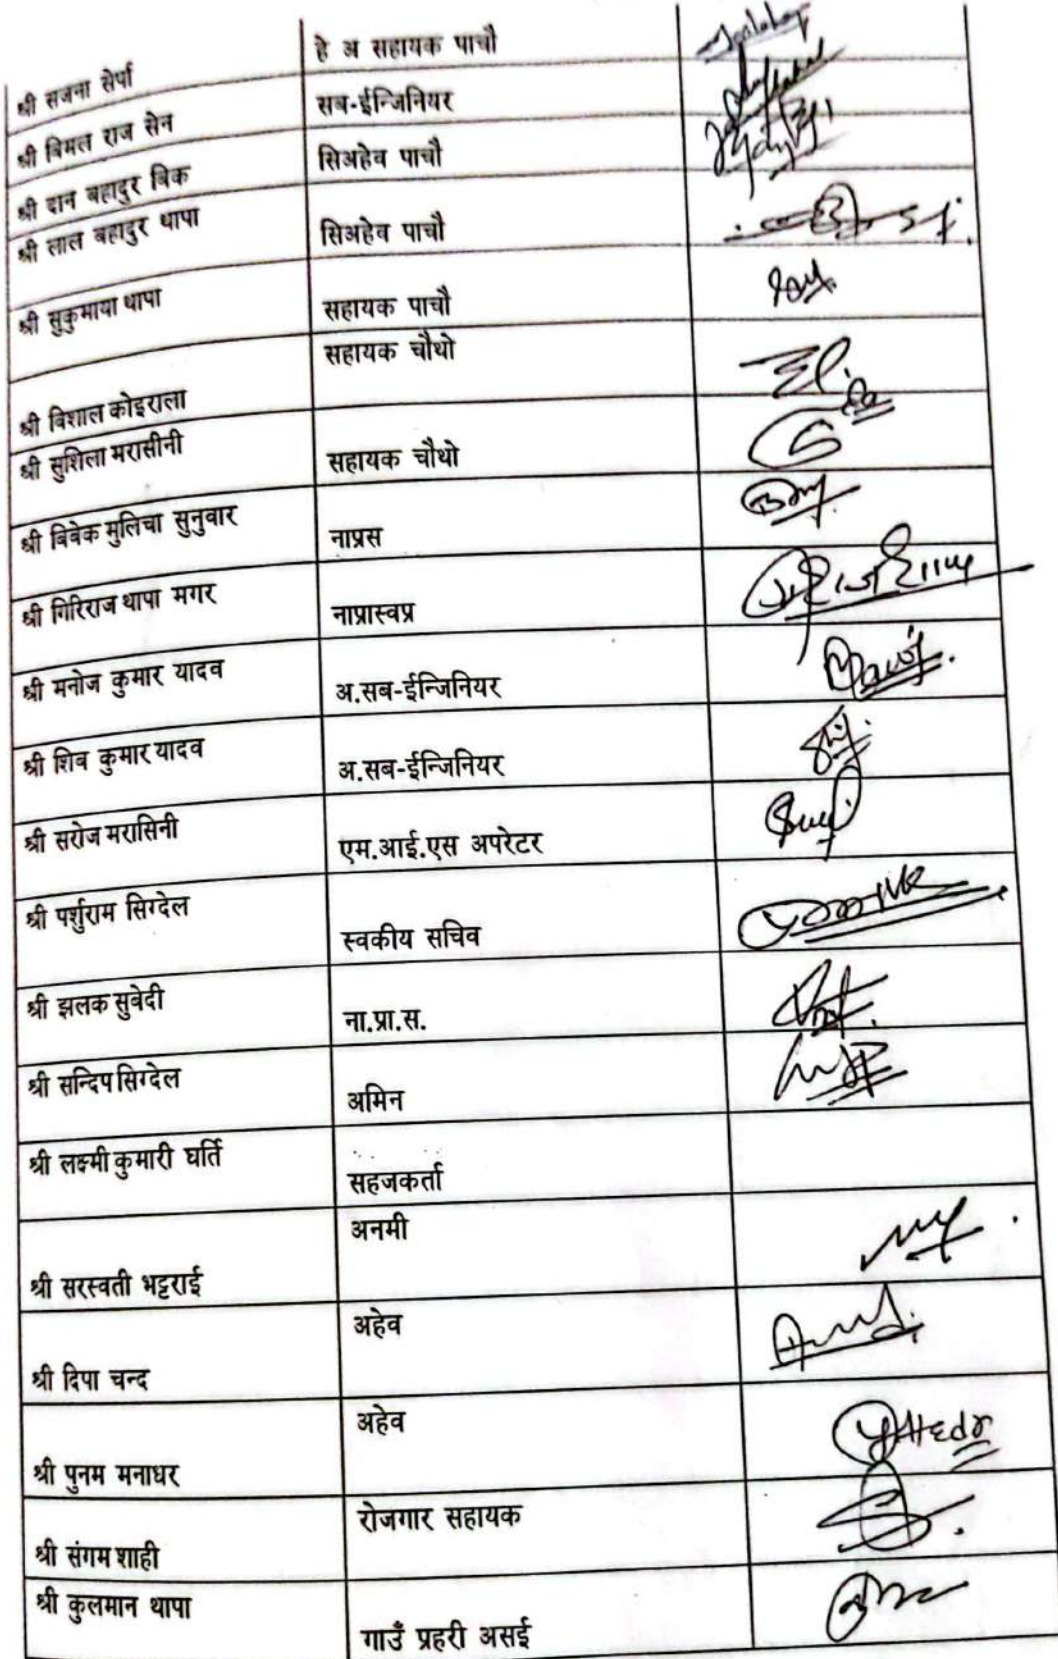 श्री सजना सेर्पा हे अ सहायक पाचौ
श्री बिमल राज सेन सब-ईन्जिनियर
श्री दान बहादुर बिक सिअहेव पाचौ
श्री लाल बहादुर थापा सिअहेव पाचौ
श्री सुकुमाया थापा सहायक पाचौ
श्री विशाल कोइराला सहायक चौथो
श्री सुशिला मरासीनी सहायक चौथो
श्री बिबेक मुलिचा सुनुवार नाप्रस
श्री गिरिराज थापा मगर नाप्रास्वप्र
श्री मनोज कुमार यादव अ.सब-ईन्जिनियर
श्री शिव कुमार यादव अ.सब-ईन्जिनियर
श्री सरोज मरासिनी एम.आई.एस अपरेटर
श्री पर्शुराम सिग्देल स्वकीय सचिव
श्री झलक सुबेदी ना.प्रा.स.
श्री सन्दिप सिग्देल अमिन
श्री लक्ष्मी कुमारी घर्ति सहजकर्ता
श्री सरस्वती भट्टराई अनमी
श्री दिपा चन्द अहेव
श्री पुनम मनाधर अहेव
श्री संगम शाही रोजगार सहायक
श्री कुलमान थापा गाउँ प्रहरी असई